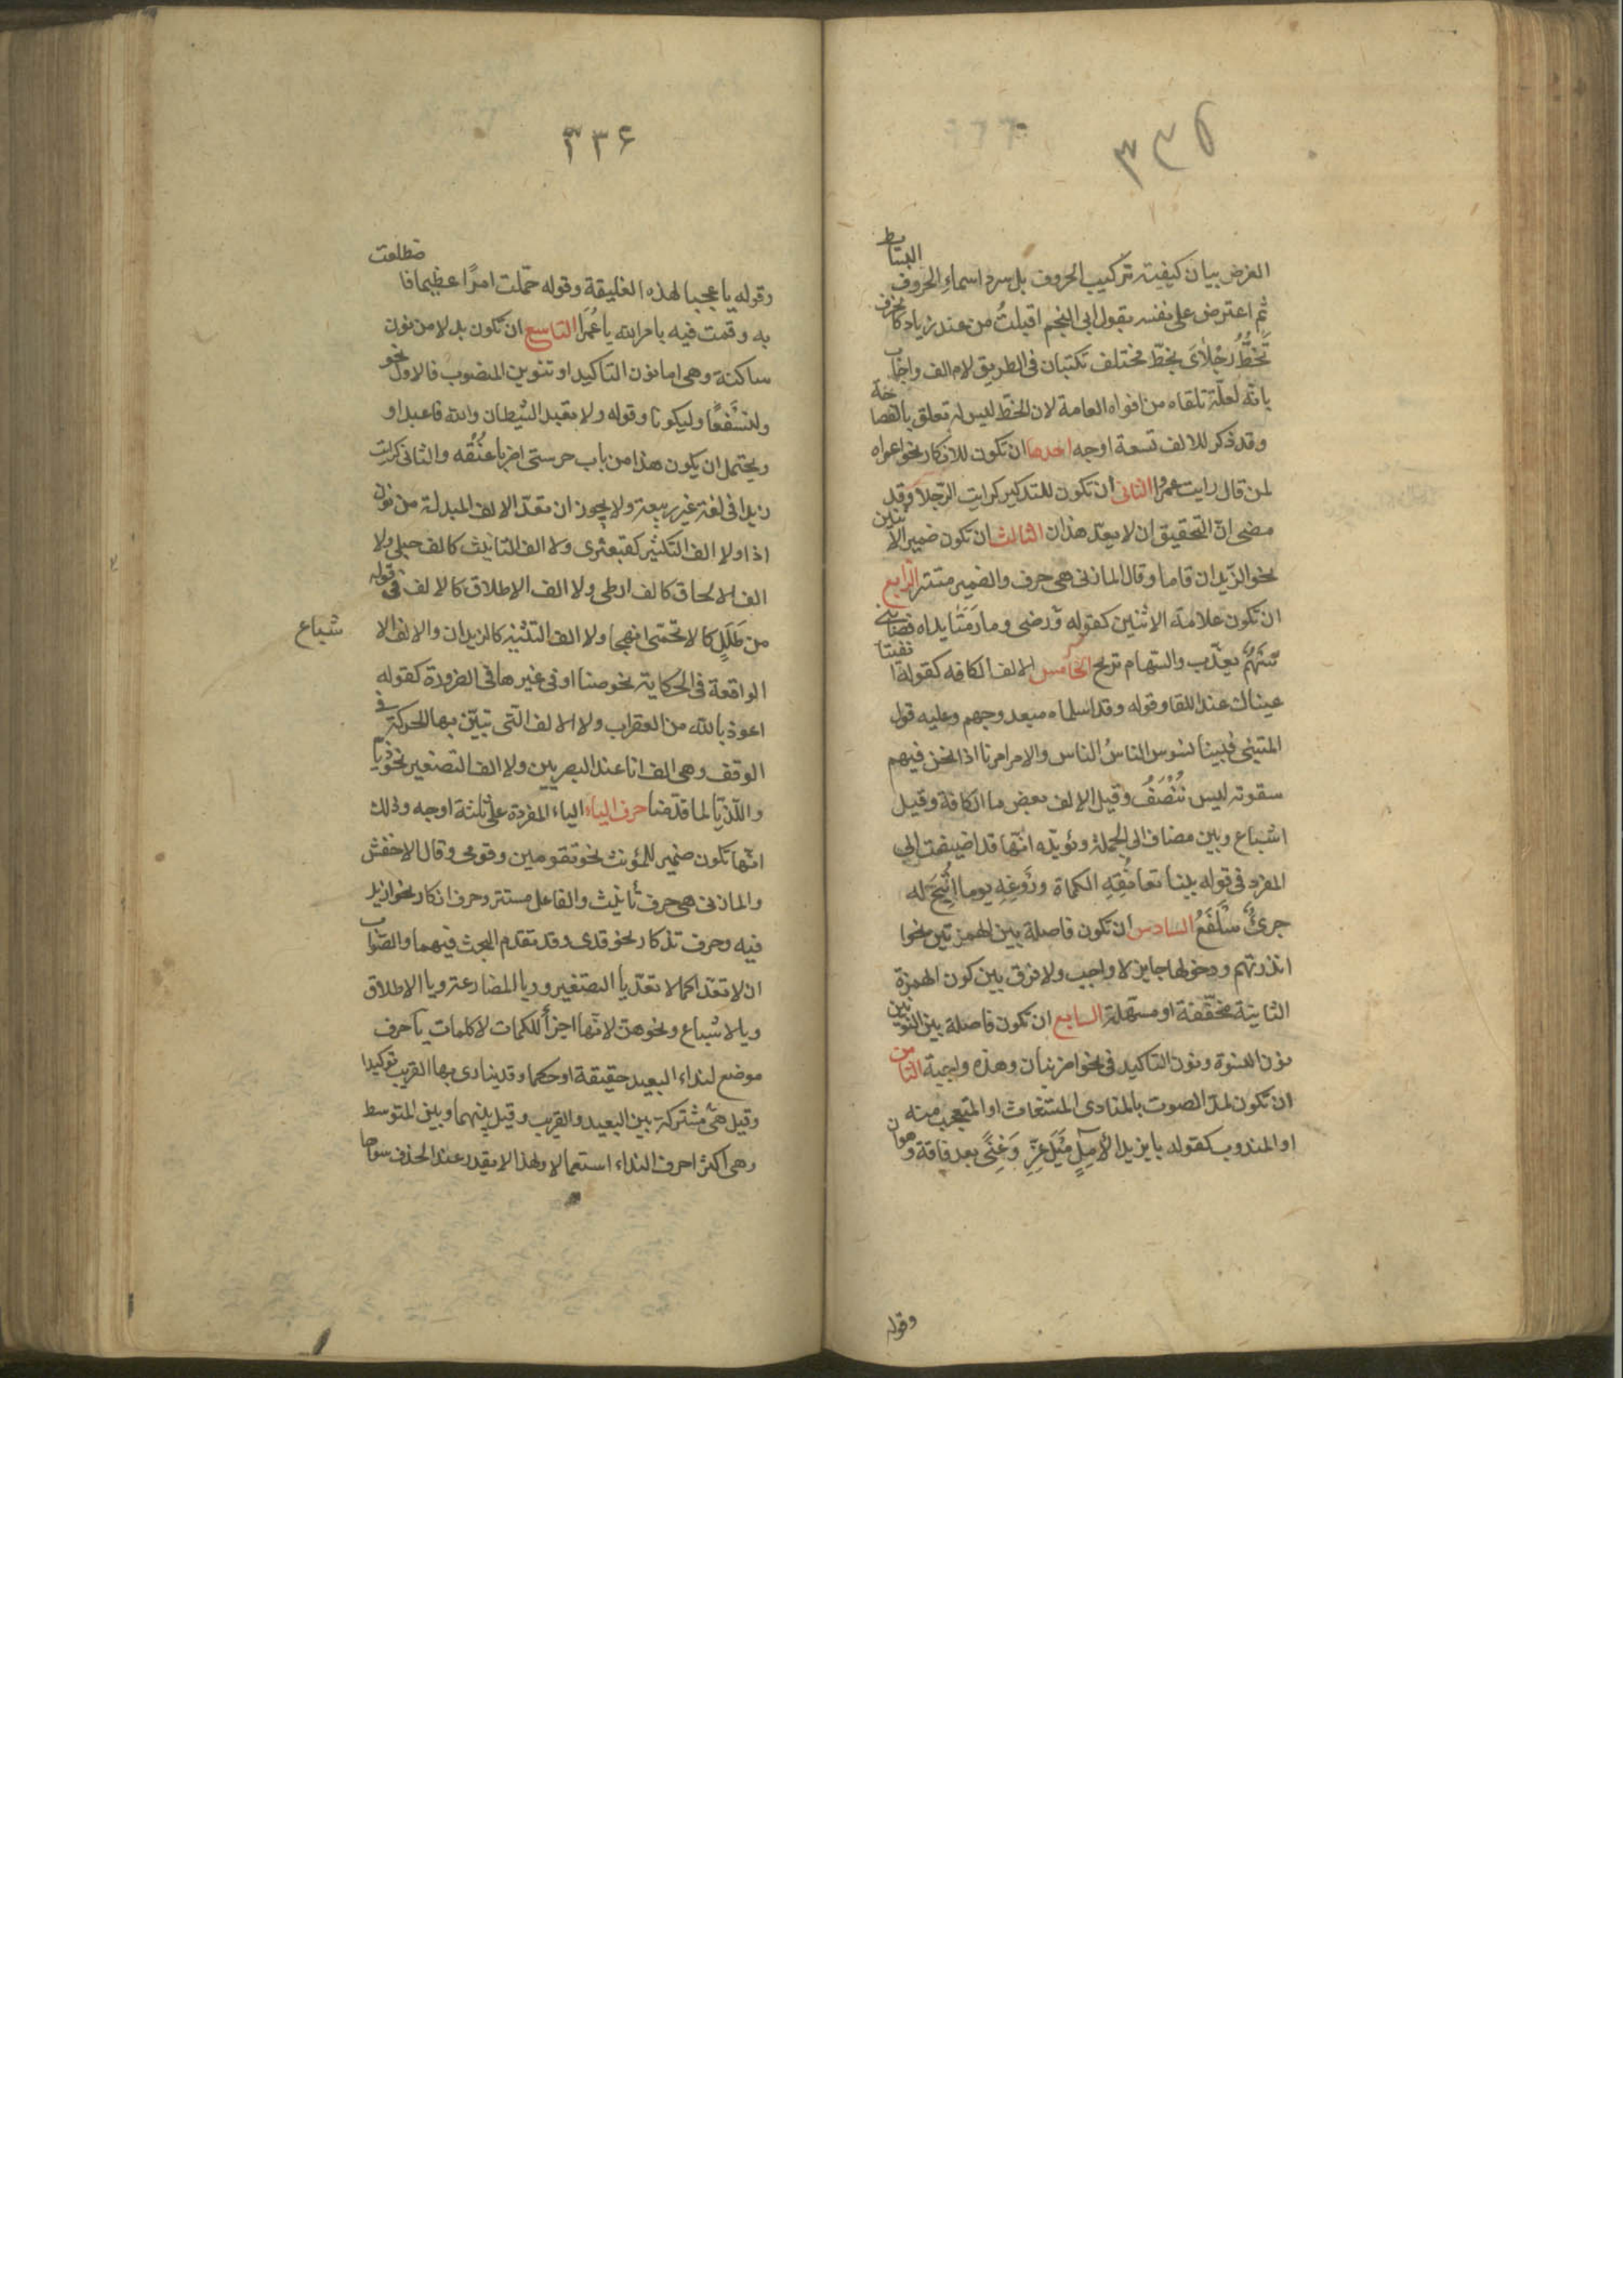 ٣٣٥
الغرض بيان كيفية تركيب الحروف بل سرد اسماء الحروف البسائط
ثم اعترض على نفسه بقول ابى النجم اقبلتُ من عند زياد كالخرف
تَخُطُّ رِجْلَاىَ بخطّ مختلف تكتبان فى الطريق لام الف واجاب
بانّه لعلّه تلقاه من افواه العامة لان الخطّ ليس له تعلق بالفصاحة
وقد ذكر للالف تسعة اوجه احدها ان تكون للانكار نحو اعمراه
لمن قال رايت عمرا الثانى ان تكون للتذكير كرايت الرّجلا وقد
مضى انّ التحقيق ان لا يعدّ هذان الثالث ان تكون ضمير الاثنين
نحو الزّيدان قاما وقال المازنى هى حرف والضمير مستتر الرابع
ان تكون علامة الاثنين كقوله ورضى وما رَمَتَا يداه فصابنى
سَهْمٌ يعذّب والسهام تريح الخامس الالف الكافه كقوله الفيتا
عيناك عند اللقا وقوله وقد اسلماه مبعد وحميم وعليه قول
المتنبى فبينا نسوس الناسُ الناس والامر امرنا اذا نحن فيهم
سقوته ليس نُنْصَفُ وقيل الالف بعض ما الكافة وقيل
اشباع وبين مضاف الى الجملة ويؤيّده انّها قد اضيفت الى
المفرد فى قوله بينا تعانُقِهِ الكماة ورَوغِهِ يوما اُتِيحَ له
جرئٌ سَلْفَعُ السادس ان تكون فاصلة بين الهمزتين نحو ا
انذرتهم ودخولها جايز لا واجب ولا فرق بين كون الهمزة
الثانية مخقّفة او مسهّلة السابع ان تكون فاصلة بين النونين
نون النسوة ونون التاكيد فى نحو اضربنان وهذه واجبة الثامن
ان تكون لمدّ الصوت بالمنادى المستغاث او المتعجب منه
او المندوب كقوله يا يزيدا لآمِلٍ نَيْلَ عِزٍّ وَغِنًى بعد فاقة وهوان
وقوله
٣٣۶
وقوله يا عجبا لهذه الفليقة وقوله حمّلت امرًا عظيما فاضطلعت
به وقمت فيه بامر الله يا عُمَرا التاسع ان تكون بدلا من نون
ساكنة وهى اما نون التاكيد او تنوين المنصوب فالاول نحو
ولنسْفعًا وليكونا وقوله ولا تعبد الشيطان والله فاعبدا و
ويحتمل ان يكون هذا من باب حرستى اضربا عنُقُه والثانى كرايت
زيدا فى لغة غير ربيعة ولا يجوز ان تعدّ الالف المبدلة من نون
اذا ولا الف التكثير كقبعثرى ولا الف التانيث كالف حبلى ولا
الف الالحاق كالف ارطى ولا الف الاطلاق كالالف فى قوله
من طَلَلٍ كالاتحمّى انهجا ولا الف التثنيه كالزيدان والالف الا شباع
الواقعة فى الحكاية نحو منا او فى غيرها فى الضرورة كقوله
اعوذ بالله من العقراب ولا الالف التى تبيّن بها الحركة فى
الوقف وهى الف انا عند البصريين ولا الف التصغير نحو ذيا
واللّذيّا لما قدّمنا حرف الياء الياء المفردة على ثلثة اوجه وذلك
انّها تكون ضمير للمؤنث نحو تقومين وقومى وقال الاخفش
والمازنى هى حرف تأنيث والفاعل مستتر وحرف انكار نحو ازيد
فيه وحرف تذكار نحو قدى وقد تقدم البحث فيهما والصّواب
ان لا تعدّا كما لا تعدّ يا التصغير ويا المضارعة ويا الاطلاق
ويا الاشباع ونحوهنّ لانّها اجزأ للكمات لا كلمات يا حرف
موضع لنداء البعيد حقيقة او حكما وقد ينادى بها القريب توكيدا
وقيل هى مشتركة بين البعيد والقريب وقيل بينهما وبين المتوسط
وهى اكثر احرف النداء استعمالا ولهذا لا يقدر عند الحذف سواها